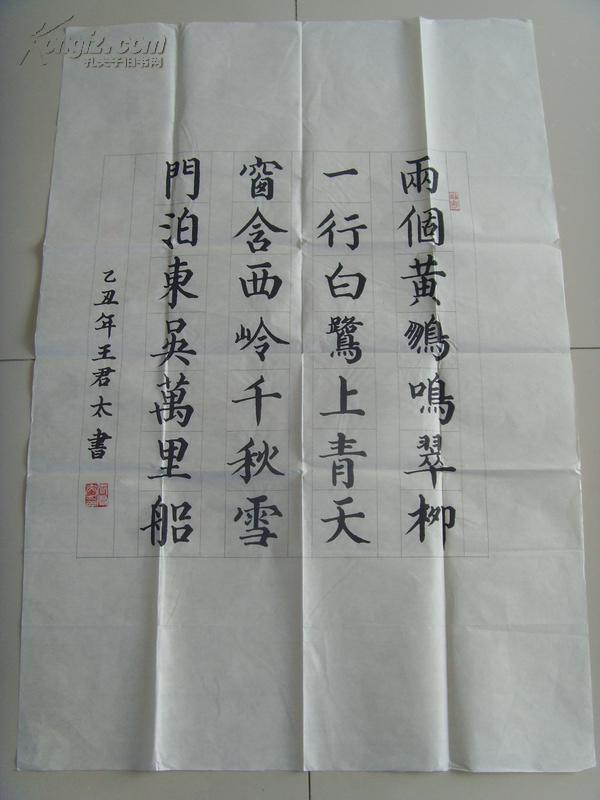 兩個黃鸝鳴翠柳
一行白鷺上青天
窗含西岭千秋雪
門泊東吳萬里船
乙丑年王君太書
Kongfz.com
孔夫子旧书网